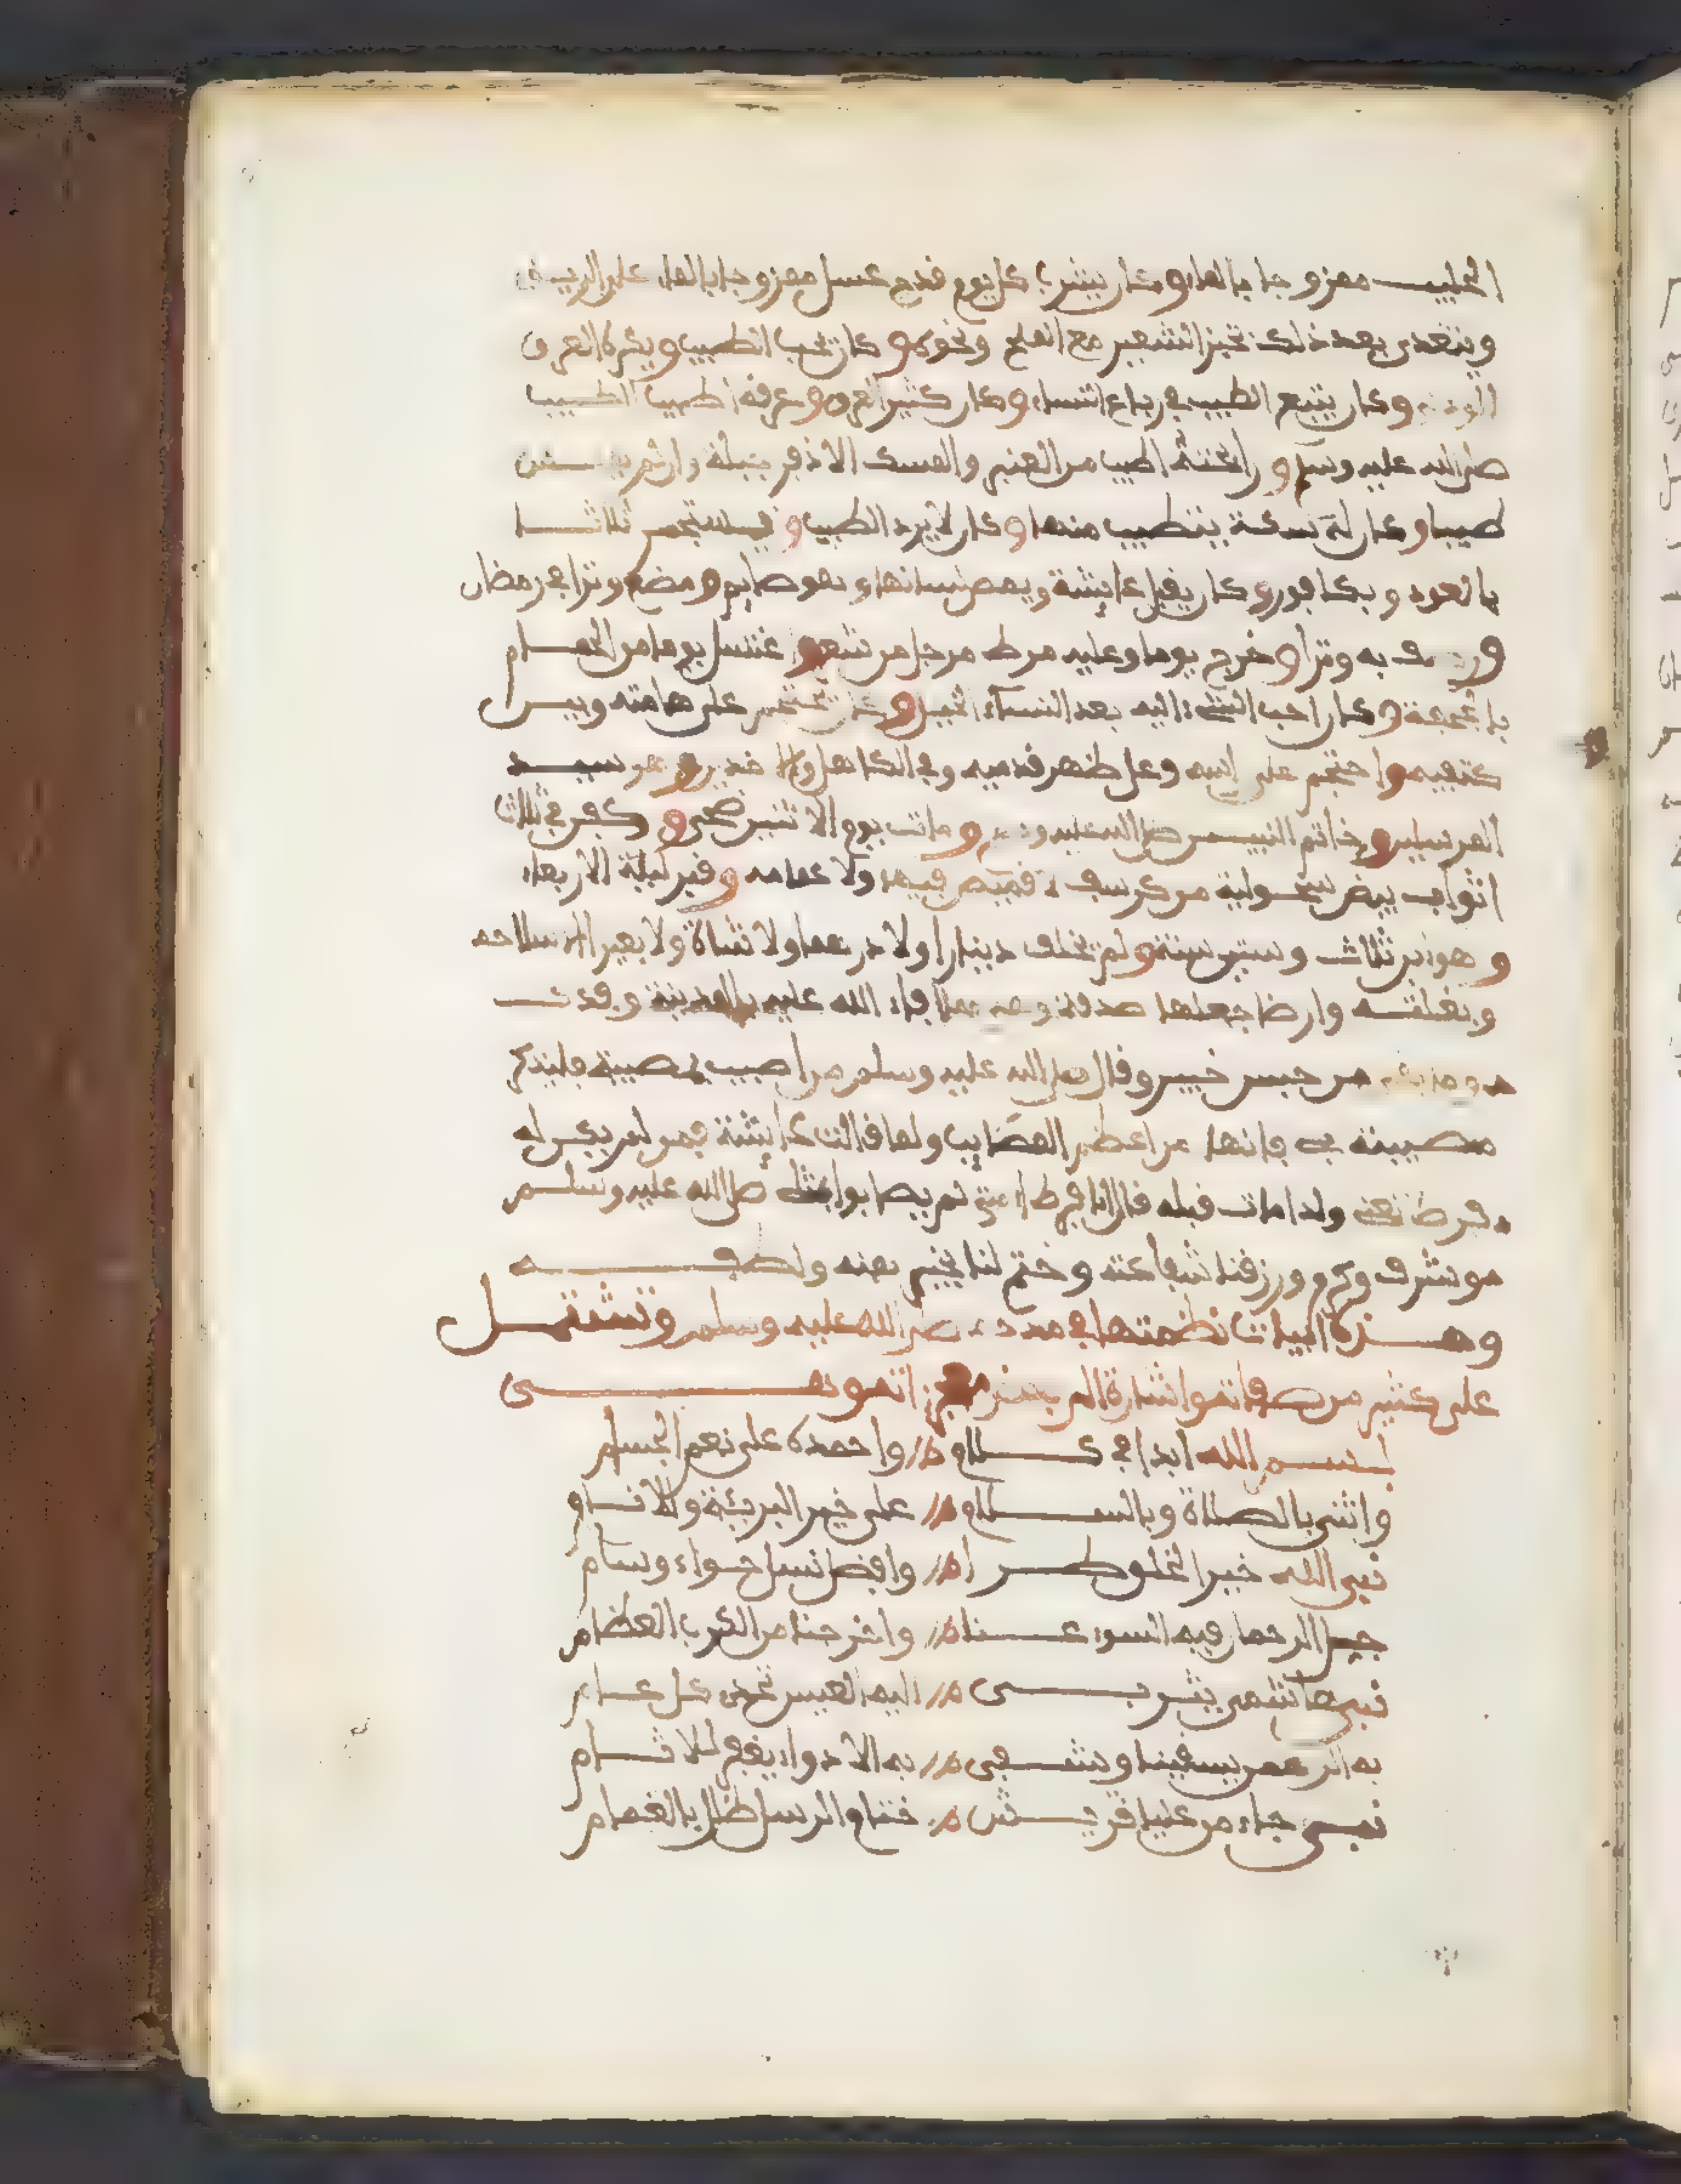 الحليب ممزوجا بالماء وكان يشرب كل يوم قدح عسل ممزوجا بالماء على الريق
ويتغدى بعد ذلك بخبز الشعير مع الملح ونحوه وكان يحب الطيب ويكره العرف
وكان يتبع الطيب في رباع النساء وكان كثير العرق وعرقه اطيب الطيب
صلى الله عليه وسلم ورائحته اطيب من العنبر والمسك الاذفر
طيبا وكان له سكة يتطيب منها وكان لا يرد الطيب ويستجمر ثلاثا
بالعود وبكافور وكان يقبل عائشة ويمص لسانها وهو صايم ومضمض وترا في رمضان
به وترا وخرج يوما وعليه مرط مرجل من شعر واغتسل يوما من الحمام
بالجحفة وكان احب الشيء اليه بعد النساء الخيل وكان يحتجم على هامته وبين
كتفيه واحتجم على اليته وعلى ظهر قدميه وفي الكاهل والاخدعين وهو سيد
المرسلين وخاتم النبيين صلى الله عليه وسلم ومات يوم الاثنين ضحى وكفن في ثلاث
اثواب بيض سحولية من كرسف لا قميص فيها ولا عمامة وقبر ليلة الاربعاء
وهو ابن ثلاث وستين سنة ولم يخلف دينارا ولا درهما ولا شاة ولا بعيرا الا سلاحه
وبغلته وارضا جعلها صدقة وهي مما افاء الله عليه بالمدينة وفدك
من خمس خيبر وقال صلى الله عليه وسلم من اصيب بمصيبة فليذكر
مصيبته بي فانها من اعظم المصايب ولما قالت عائشة فمن لم يكن له
فرط تعني ولدا مات قبله قال انا فرط امتي لم يصابوا بمثلي صلى الله عليه وسلم
وشرف وكرم ورزقنا شفاعته وختم لنا بخير بمنه ولطفه
وهذه ابيات نظمتها في مدحه صلى الله عليه وسلم وتشتمل
على كثير من صفاته واشارة الى بعض معجزاته وهي
بسم الله ابدا في كلام واحمده على نعم الجسام
واثني بالصلاة وبالسلام على خير البرية والانام
نبي الله خير الخلق طرا وافضل نسل حواء وسام
جلى الرحمان فيه السوء عنا واخرجنا من الكرب العظام
نبي هاشمي يثربي اليه العيس تحدى كل عام
به الرحمن يسقينا ويشفي به الادواء يغفر للاثام
نبي جاء من عليا قريش ختام الرسل ظلل بالغمام